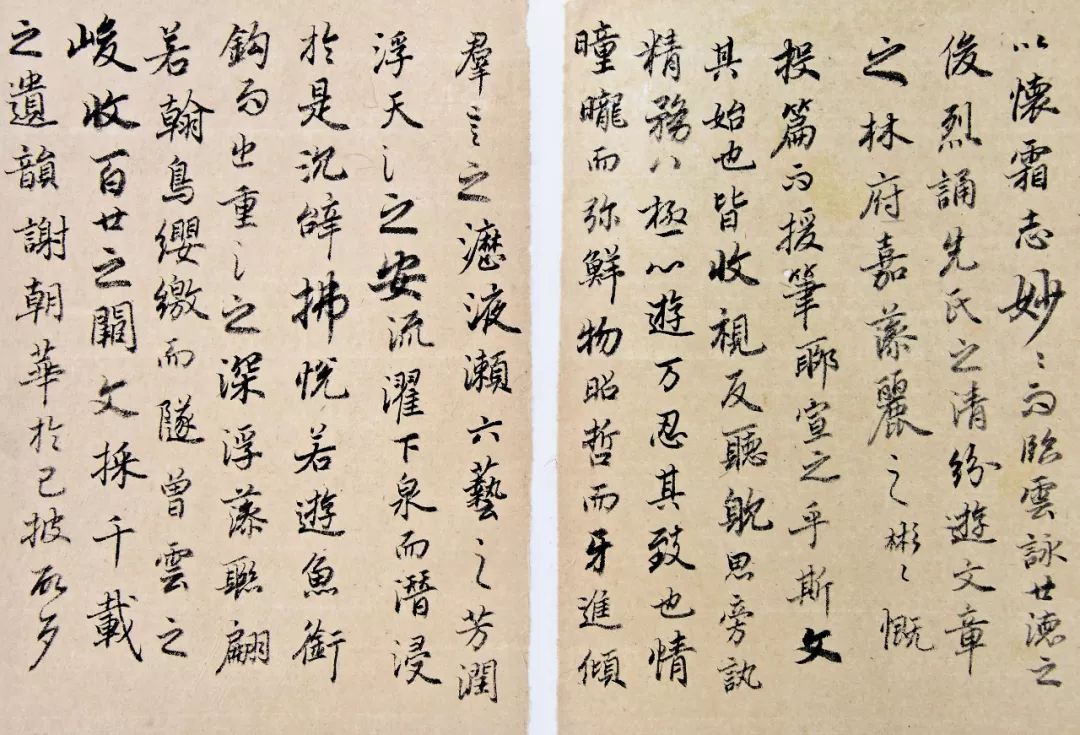 以懷霜志妙〻而臨雲詠世德之
俊烈誦先氏之清紛遊文章
之林府嘉藻麗之彬〻慨
投篇而援筆聊宣之乎斯文
其始也皆收視反聽躭思旁訊
精務八極心遊万忍其致也情
曈曨而弥鮮物昭哲而牙進傾
羣言之瀝液瀨六藝之芳潤
浮天〻之安流濯下泉而潛浸
於是沉辭拂悅若遊魚銜
鈎而出重〻之深浮藻聯翩
若翰鳥纓繳而隧曾雲之
峻收百世之闕文採千載
之遺韻謝朝華於已披啟夕